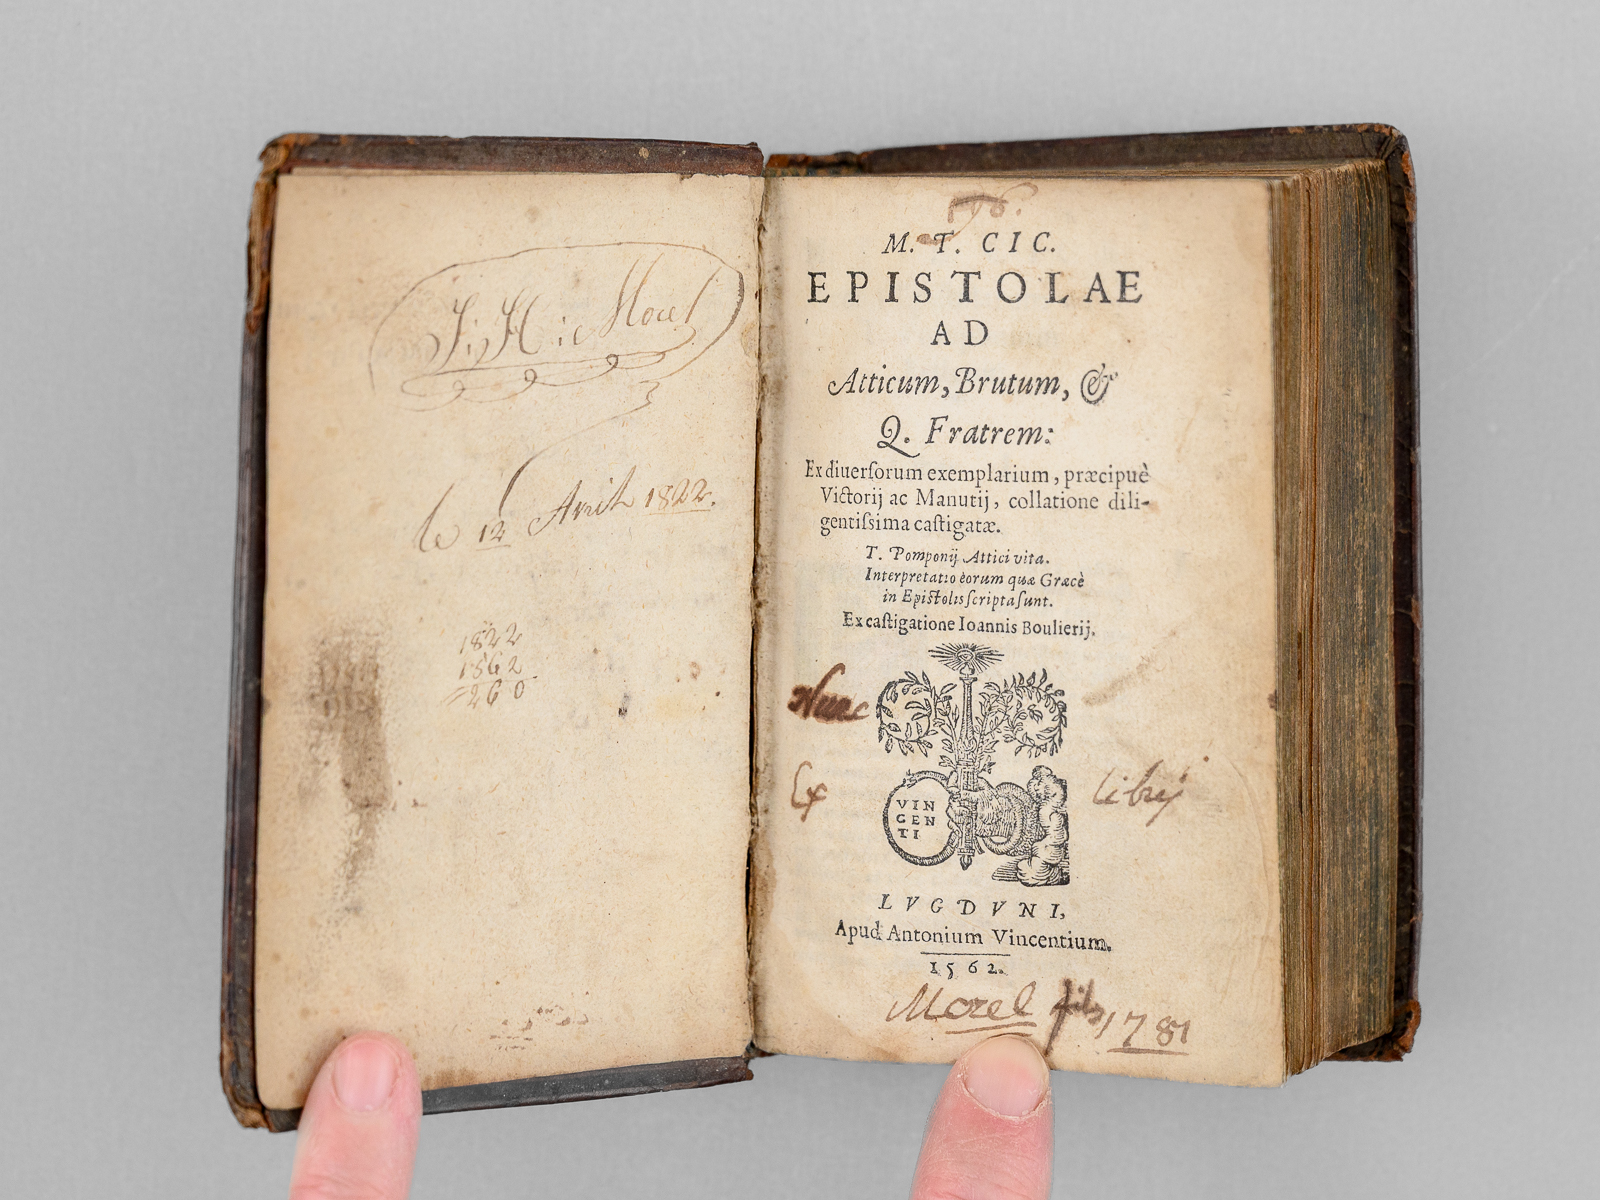 J. H. c Morel
le 12 Avril 1822.
1822
1562
260
M. T. CIC.
EPISTOLAE
AD
Atticum, Brutum, &
Q. Fratrem:
Ex diuerſorum exemplarium, præcipuè
Victorij ac Manutij, collatione dili-
gentiſsima caſtigatæ.
T. Pomponij Attici vita.
Interpretatio eorum quæ Græcè
in Epistolis ſcripta ſunt.
Ex caſtigatione Ioannis Boulierij.
Nunc
Ex libris
VIN
CEN
TI
LVGDVNI,
Apud Antonium Vincentium.
1562.
Morel fils 1781